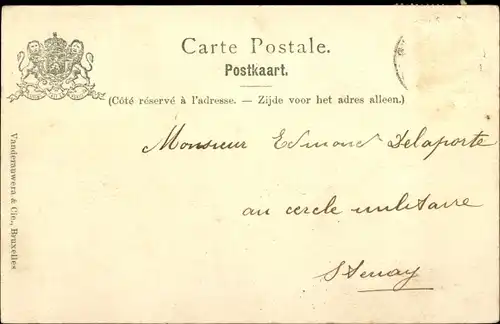 Carte Postale.
Postkaart.
(Côté réservé à l'adresse. — Zijde voor het adres alleen.)
Monsieur Edmond Delaporte
au cercle militaire
Stenay
Vanderauwera & Cie., Bruxelles